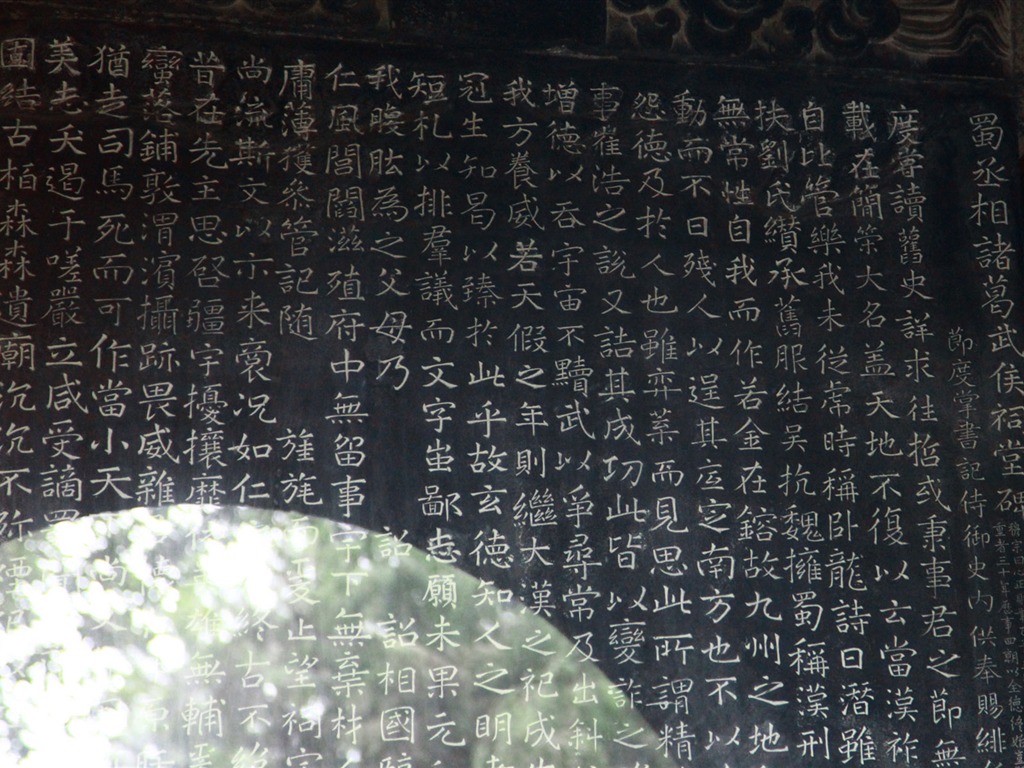 蜀丞相諸葛武侯祠堂碑
節度掌書記侍御史内供奉賜緋
度嘗讀舊史詳求往哲或秉事君之節無
載在簡策大名盖天地不復以云當漢祚
自比管樂我未從虎時稱卧龍詩曰潛雖
扶劉氏纘承舊服結吳抗魏擁蜀稱漢刑
無常性自我而作若金在鎔故九州之地
動而不曰殘人以逞其底定南方也不以
怨德及於人也雖弈葉而見思此所謂精
事崔浩之說又詰其成功此皆以變詐之
增德以吞宇宙不黷武以爭尋常及出斜
我方養威若天假之年則繼大漢之祀成
冠生知曷以臻於此乎故玄德知人之明
短札以排羣議而文字蚩鄙志願未果元
我腹肱為之父母乃 詔相國
仁風閭閻滋殖府中無留事宇下無棄材
庸薄獲參管記随 旌旄而爰止望祠宇
尚流斯文以示来裔況如仁 終古不絕
昔在先主思啓疆宇擾攘靡 無輔
蠻落鋪敦渭濱攝跡畏威雜
猶走司馬死而可作當小天
美志矣遏于嗟嚴立咸受謫罪
圖結古栢森森遺廟沉沉不